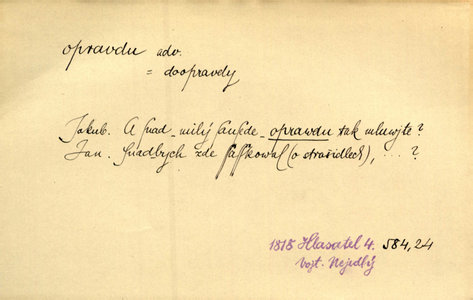 opravdu adv.
= doopravdy
Jakub. A snad – milý sausede – oprawdu tak mluwjte?
Jan. Snadbych zde šaškowal (o strašidlech), ... ?
1818 Hlasatel 4. 584,24
Vojt. Nejedlý